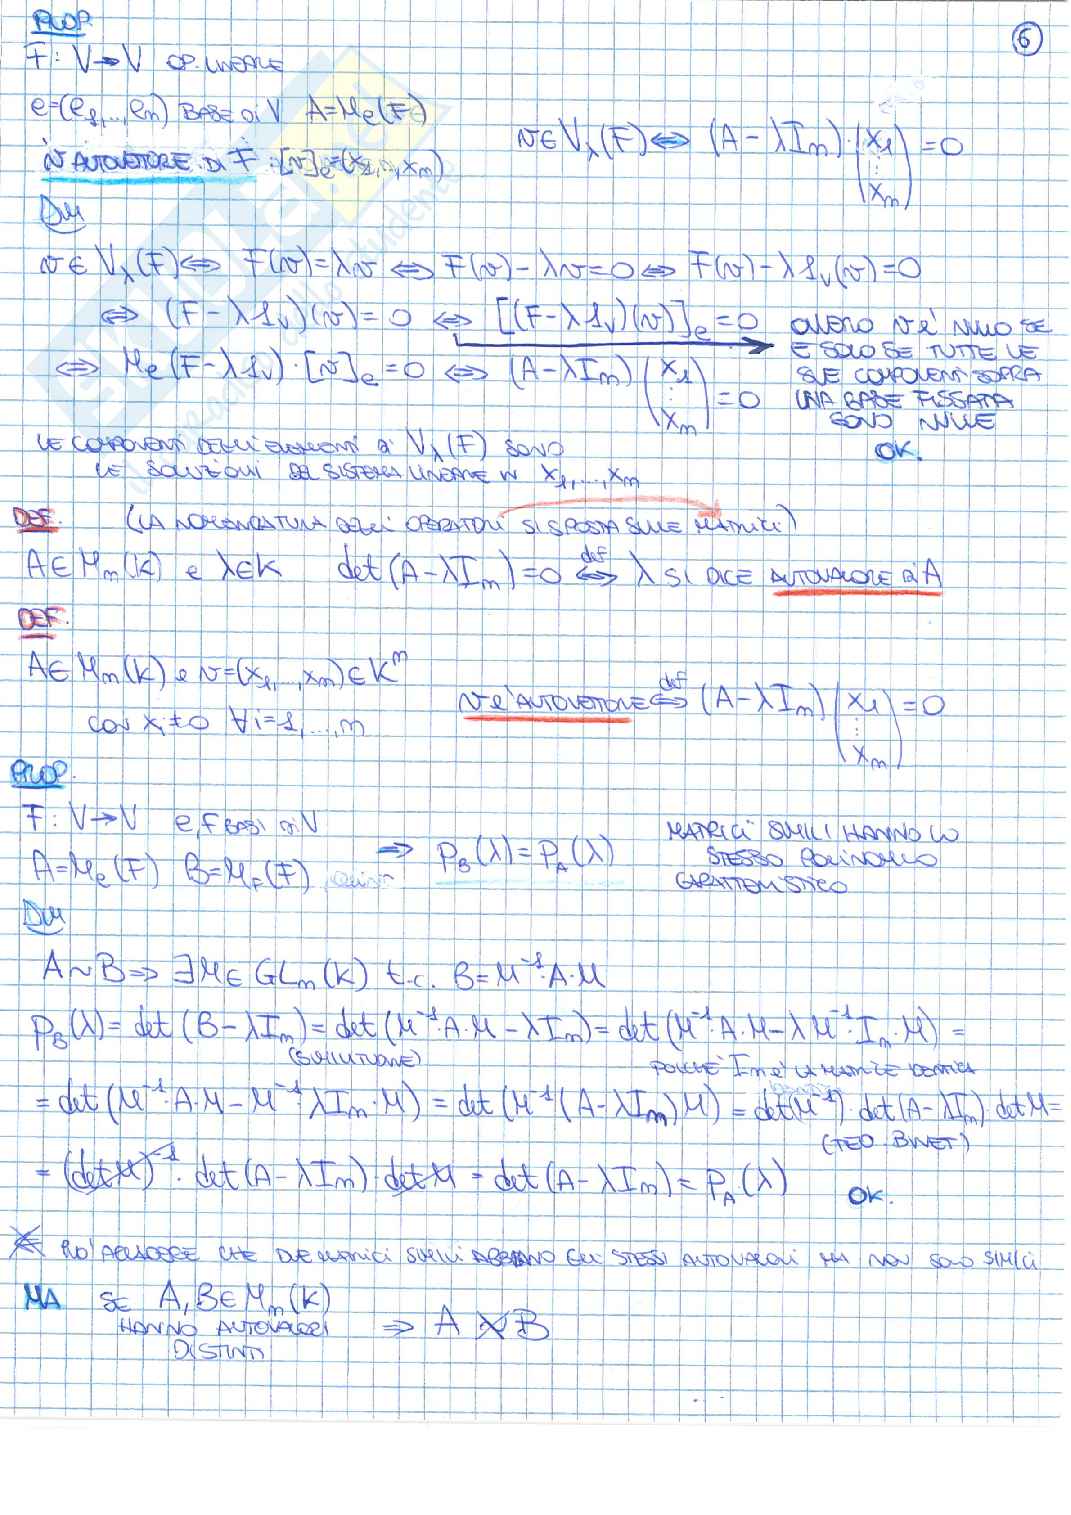 PROP.
6
F: V→V OP. LINEARE
e=(e₁,...,eₙ) BASE DI V A=Mₑ(F)
v AUTOVETTORE DI F [v]ₑ=(x₁,...,xₙ)
v∈V_λ(F) ⇔ (A-λIₙ)·(x₁ ⋮ xₙ)=0
DIM
v∈V_λ(F) ⇔ F(v)=λv ⇔ F(v)-λv=0 ⇔ F(v)-λ1_V(v)=0
⇔ (F-λ1_V)(v)=0 ⇔ [(F-λ1_V)(v)]ₑ=0
OVVERO V È NULLO SE
E SOLO SE TUTTE LE
SUE COMPONENTI SOPRA
UNA BASE FISSATA
SONO NULLE
OK.
⇔ Mₑ(F-λ1_V)·[v]ₑ=0 ⇔ (A-λIₙ)(x₁ ⋮ xₙ)=0
LE COMPONENTI DEGLI ELEMENTI DI V_λ(F) SONO
LE SOLUZIONI DEL SISTEMA LINEARE IN x₁,...,xₙ
DEF. (LA NOMENCLATURA DEGLI OPERATORI SI SPOSTA SULLE MATRICI)
A∈Mₙ(K) e λ∈K det(A-λIₙ)=0 ⇔def λ SI DICE AUTOVALORE DI A
DEF.
A∈Mₙ(K) e v=(x₁,...,xₙ)∈Kⁿ
CON xᵢ≠0 ∀i=1,...,n
v è AUTOVETTORE ⇔def (A-λIₙ)(x₁ ⋮ xₙ)=0
PROP.
F: V→V e,f BASI DI V
A=Mₑ(F) B=M_f(F)
⇒ P_B(λ)=P_A(λ)
MATRICI SIMILI HANNO LO
STESSO POLINOMIO
CARATTERISTICO
DIM
A∼B ⇒ ∃M∈GLₙ(K) t.c. B=M⁻¹·A·M
P_B(λ)=det(B-λIₙ)=det(M⁻¹·A·M-λIₙ)=det(M⁻¹·A·M-λM⁻¹·Iₙ·M)=
(SIMILITUDINE)
POICHÉ Iₙ È LA MATRICE IDENTICA
=det(M⁻¹·A·M-M⁻¹·λIₙ·M)=det(M⁻¹(A-λIₙ)M)=det(M⁻¹)·det(A-λIₙ)·det M=
(TEO. BINET)
=(det M)⁻¹·det(A-λIₙ)·det M=det(A-λIₙ)=P_A(λ) OK.
PUÒ ACCADERE CHE DUE MATRICI SIMILI ABBIANO GLI STESSI AUTOVALORI MA NON SONO SIMILI
MA SE A,B∈Mₙ(K)
HANNO AUTOVALORI
DISTINTI
⇒ A ≁ B